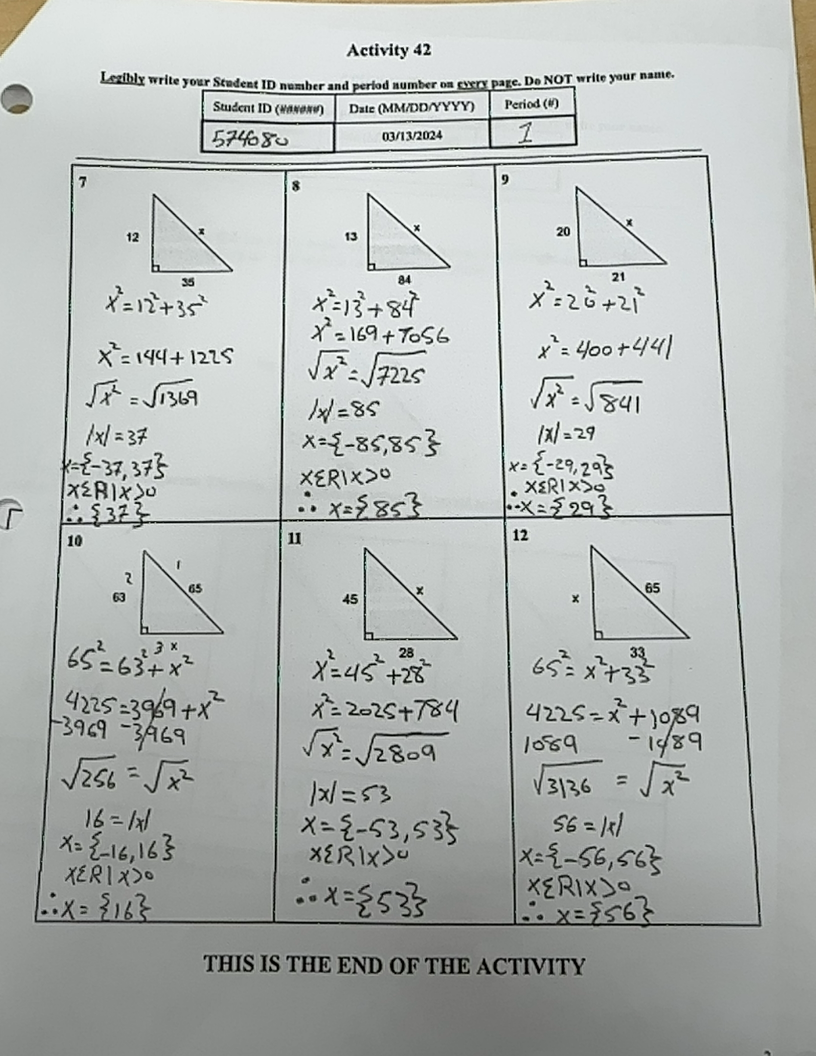 Activity 42
Legibly write your Student ID number and period number on every page. Do NOT write your name.
Student ID (######) Date (MM/DD/YYYY) Period (#)
574080 03/13/2024 1
7
12
x
35
x²=12²+35²
x²=144+1225
√x²=√1369
|x|=37
x={-37,37}
xƐR|x>0
∴{37}
8
13
x
84
x²=13²+84²
x²=169+7056
√x²=√7225
|x|=85
x={-85,85}
xƐR|x>0
∴ x={85}
9
20
x
21
x²=20²+21²
x²=400+441
√x²=√841
|x|=29
x={-29,29}
xƐR|x>0
∴x={29}
10
2 1
63
65
3 x
65²=63²+x²
4225=3969+x²
-3969 -3969
√256=√x²
16=|x|
x={-16,16}
xƐR|x>0
∴x={16}
11
45
x
28
x²=45²+28²
x²=2025+784
√x²=√2809
|x|=53
x={-53,53}
xƐR|x>0
∴x={53}
12
x
65
33
65²=x²+33²
4225=x²+1089
1089 -1089
√3136 = √x²
56=|x|
x={-56,56}
xƐR|x>0
∴ x={56}
THIS IS THE END OF THE ACTIVITY